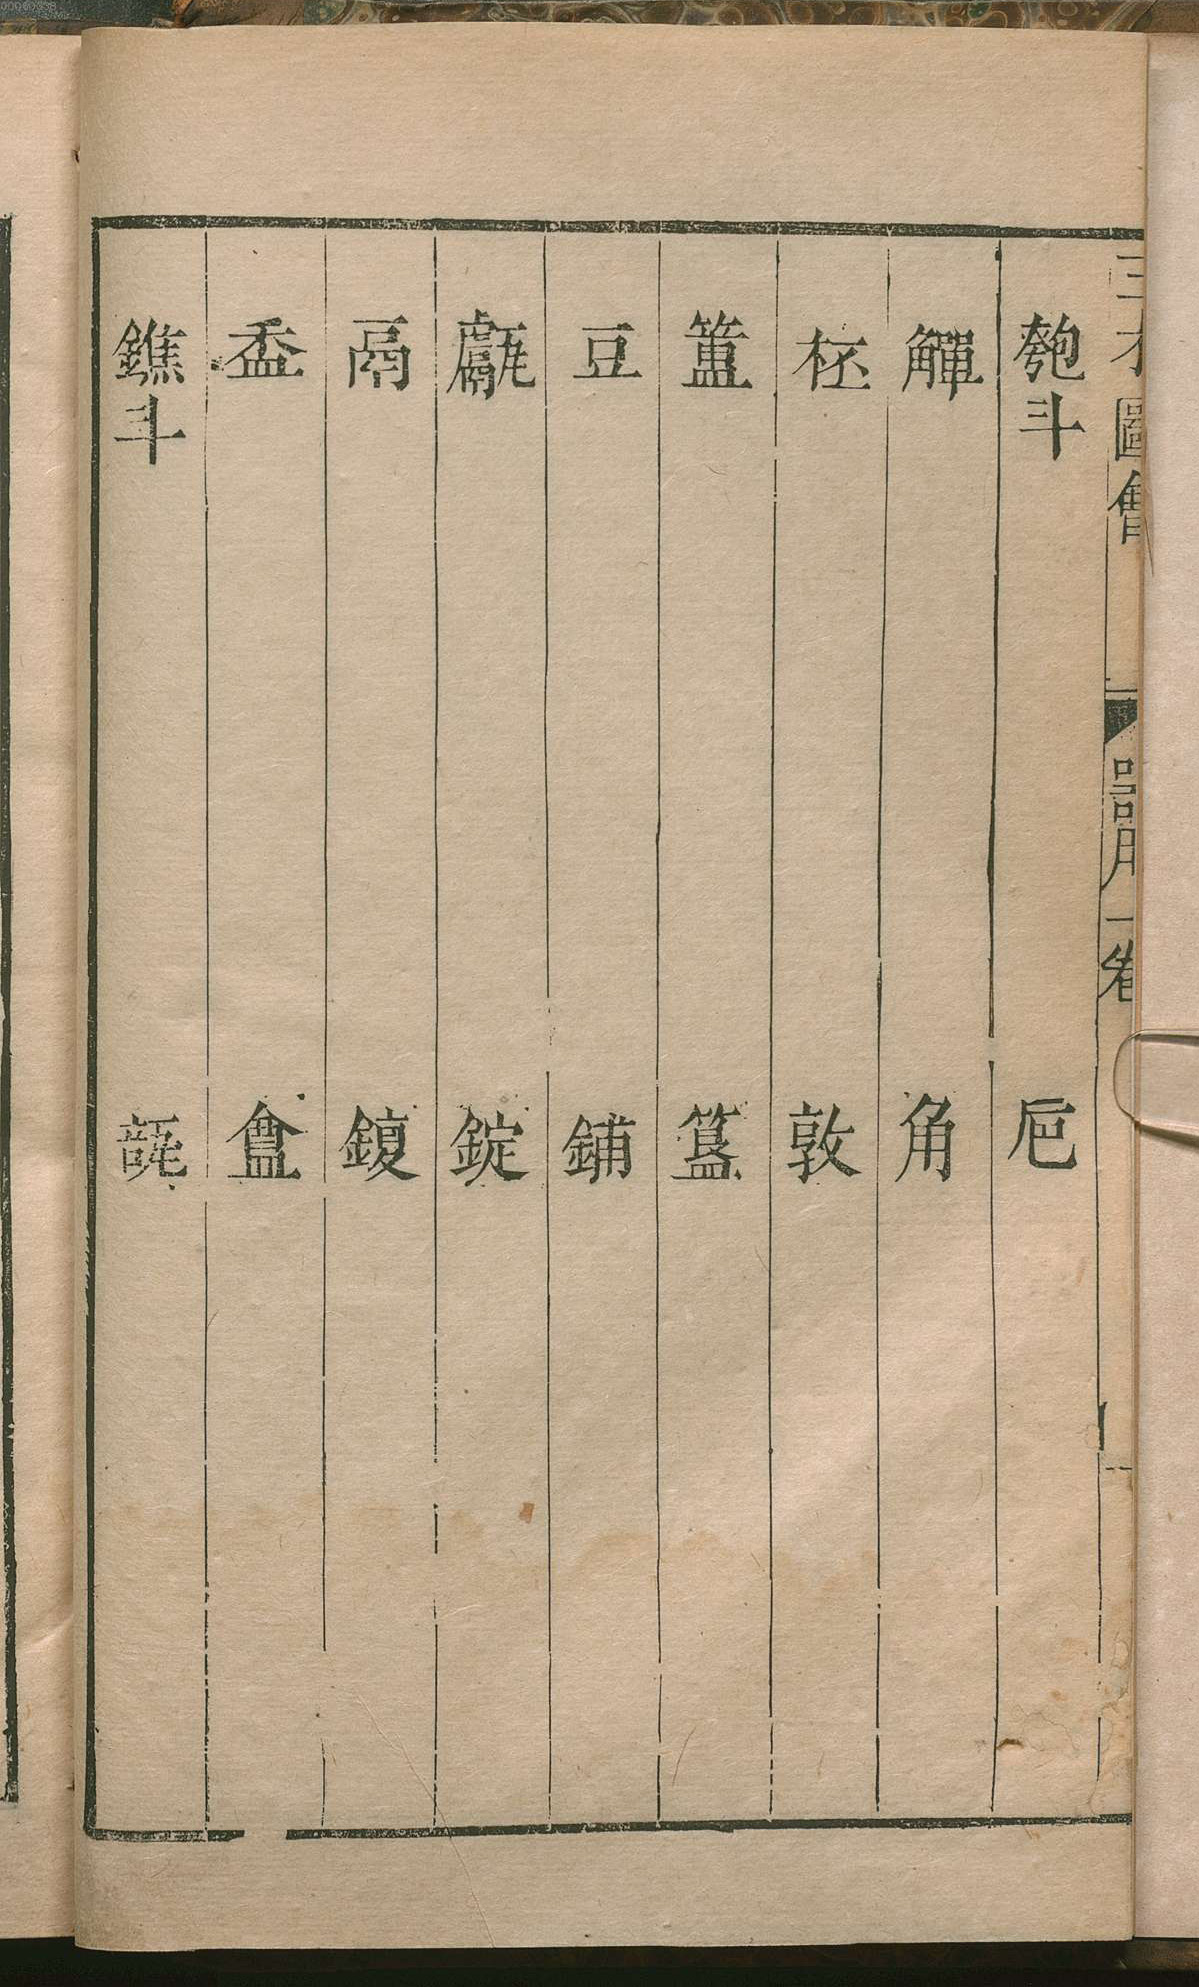 三才圖會
器用一卷
匏斗　巵
觶　角
柸　敦
簠　簋
豆　鋪
甗　錠
鬲　鍑
盉　盦
鐎斗　瓿